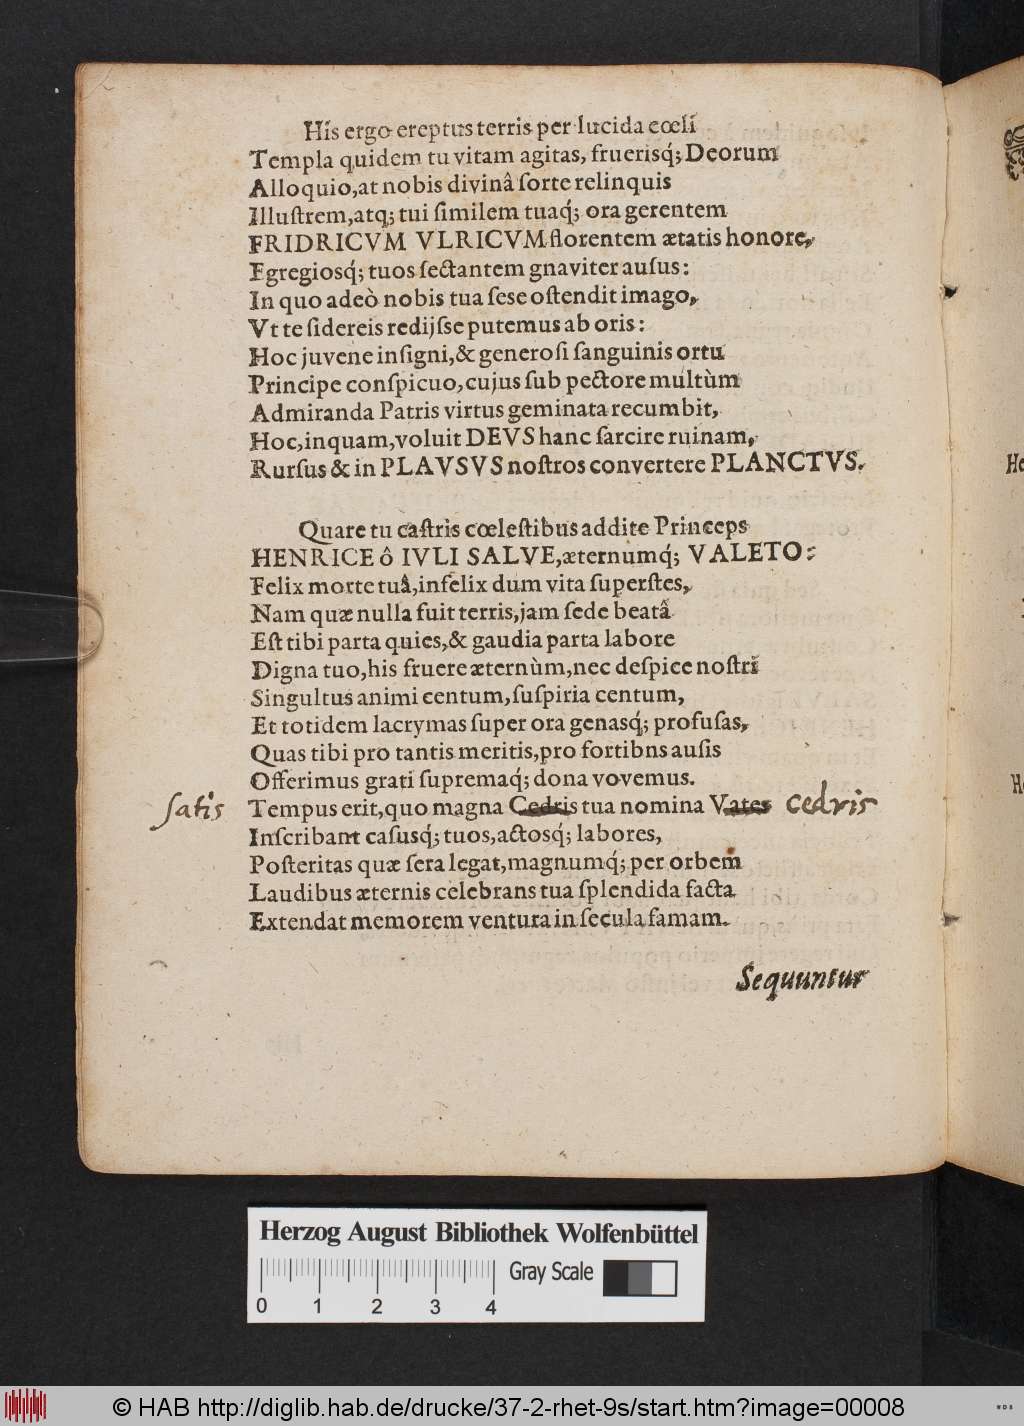 Hîs ergo ereptus terris per lucida cœlî
Templa quidem tu vitam agitas, fruerisq́; Deorum
Alloquio,at nobis divinâ ſorte relinquis
Illuſtrem,atq; tui ſimilem tuaq́; ora gerentem
FRIDRICVM VLRICVM florentem ætatis honore,
Egregiosq́; tuos ſectantem gnaviter auſus:
In quo adeò nobis tua ſese oſtendit imago,
Vt te ſidereis redijſse putemus ab oris:
Hoc juvene inſigni,& generoſi ſanguinis ortu
Principe conſpicuo, cujus ſub pectore multùm
Admiranda Patris virtus geminata recumbit,
Hoc,inquam,voluit DEVS hanc ſarcire ruinam,
Rurſus & in PLAVSVS noſtros convertere PLANCTVS.
Quare tu caſtris cœleſtibus addite Princeps
HENRICE ô IVLI SALVE,æternumq́; VALETO:
Felix morte tuâ,infelix dum vita ſuperſtes,
Nam quæ nulla fuit terris,jam ſede beatâ
Eſt tibi parta quies,& gaudia parta labore
Digna tuo,his fruere æternùm,nec deſpice noſtri
Singultus animi centum,ſuſpiria centum,
Et totidem lacrymas ſuper ora genasq́; profuſas,
Quas tibi pro tantis meritis,pro fortibns auſis
Offerimus grati ſupremaq́; dona vovemus.
ſatis Tempus erit,quo magna Cedris tua nomina Vates Cedris
Inſcribant caſusq́; tuos,actosq́; labores,
Poſteritas quæ ſera legat,magnumq́; per orbem
Laudibus æternis celebrans tua ſplendida facta
Extendat memorem ventura in ſecula famam.
Sequuntur
Herzog August Bibliothek Wolfenbüttel
Gray Scale
0 1 2 3 4
© HAB http://diglib.hab.de/drucke/37-2-rhet-9s/start.htm?image=00008